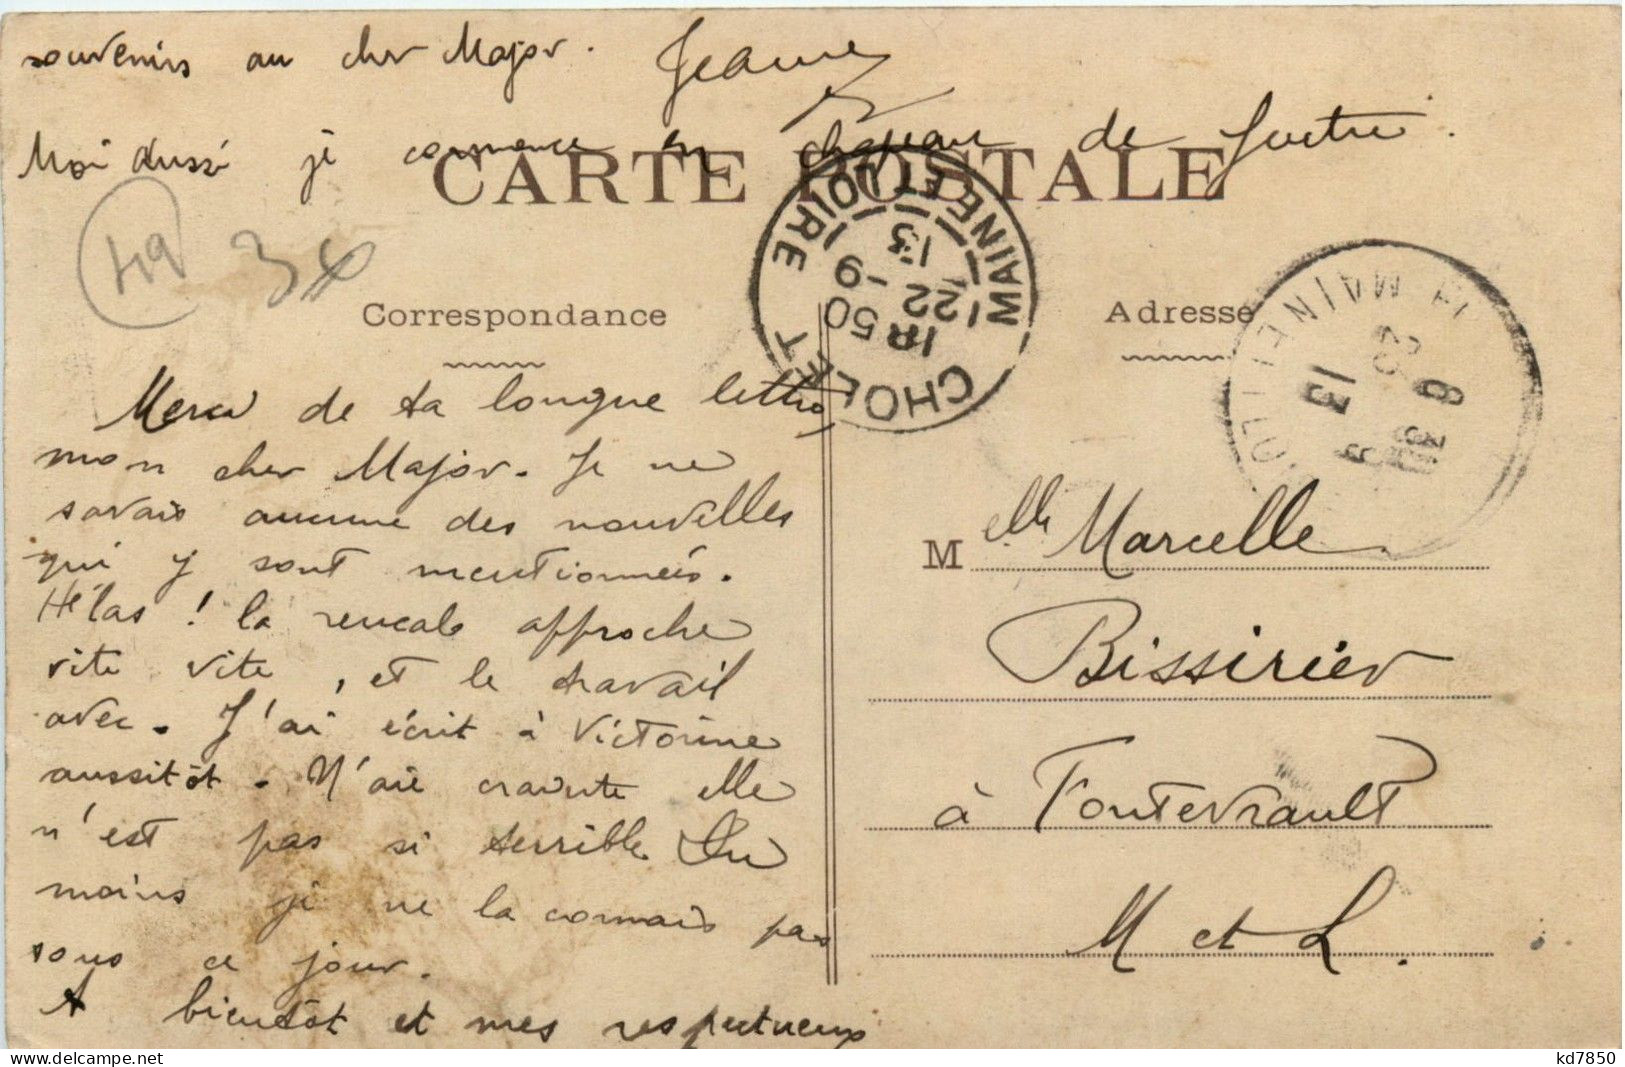 souvenirs au cher Major. Jeanne
Moi aussi je commence un chapeau de feutre.
CARTE POSTALE
49 3x
Correspondance
Adresse
CHOLET MAINE ET LOIRE
1R 50
22 -9
13
Merci de ta longue lettre
mon cher Major. Je ne
savais aucune des nouvelles
qui y sont mentionnées.
Hélas ! la rentrée approche
vite vite, et le travail
avec. J'ai écrit à Victorine
aussitôt. N'aie crainte elle
n'est pas si terrible. Du
moins je ne la connais pas
sous ce jour.
A bientôt et mes respectueux
Melle Marcelle
Bissirier
à Fontevrault
M et L.
kd7850